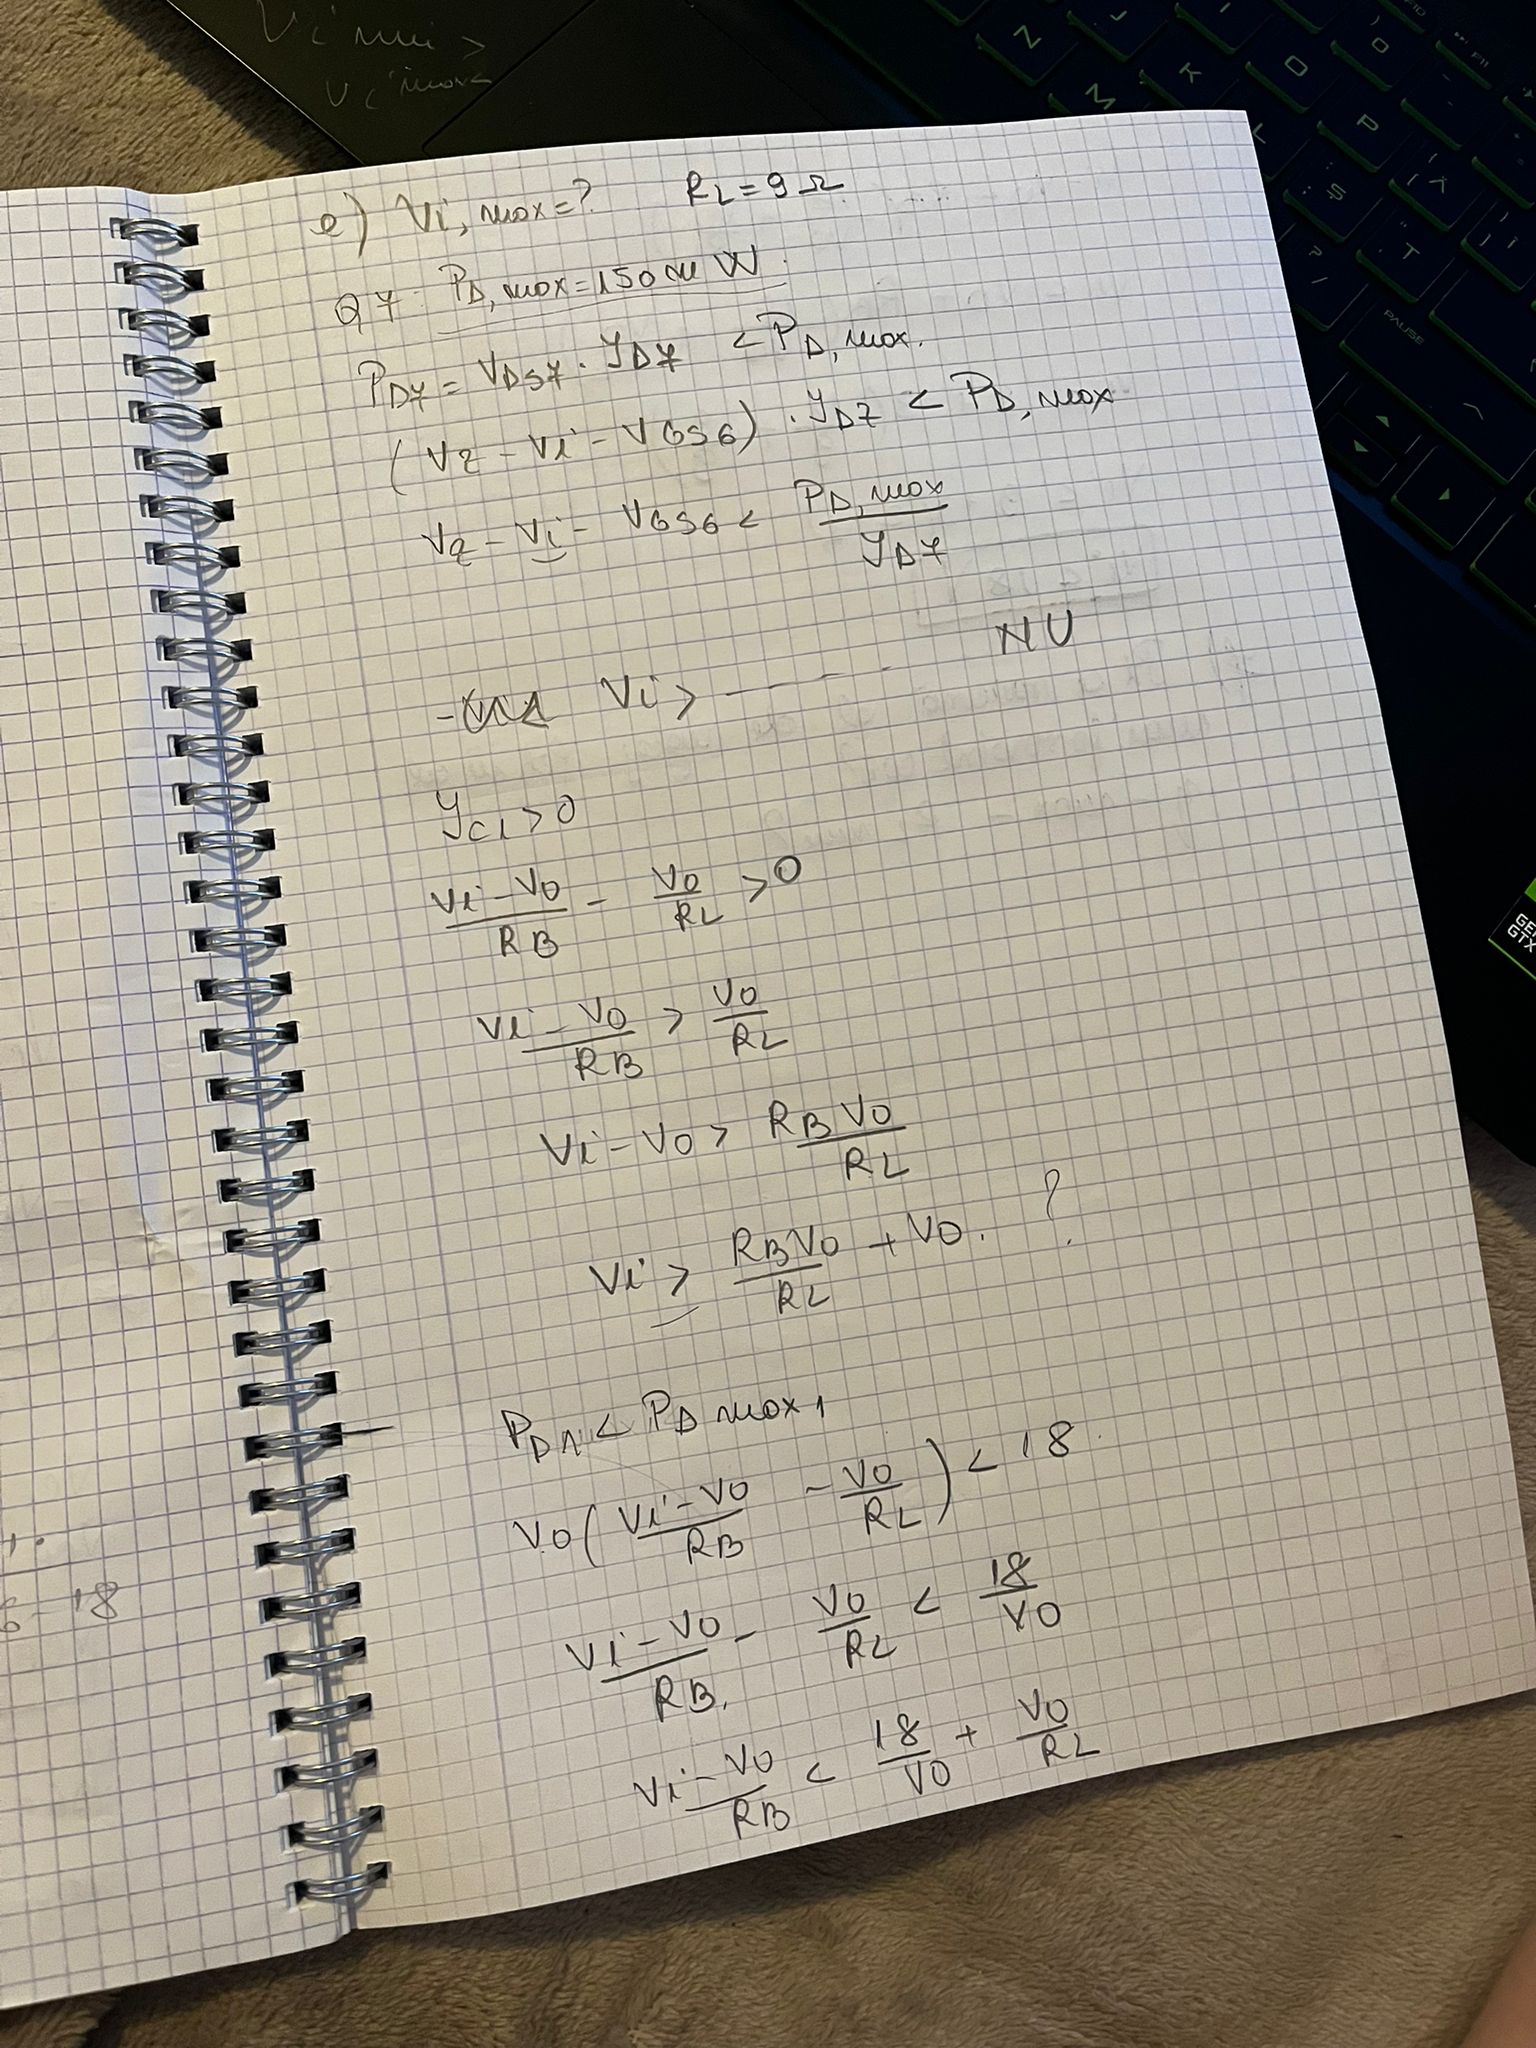 e) Vi, max=? RL=9Ω
Q7 PD,max=150mW.
PD7= VDS7 · ID7 < PD, max.
(VZ - Vi - VGS6) · ID7 < PD, max
VZ - Vi - VGS6 < PD, max / ID7
NU
Vi > - - - -
IC1 > 0
Vi - VO / RB - VO / RL > 0
Vi - VO / RB > VO / RL
Vi - VO > RB VO / RL
Vi > RB VO / RL + VO. ?
PD1 < PD max 1
VO ( Vi - VO / RB - VO / RL ) < 18
Vi - VO / RB - VO / RL < 18 / VO
Vi - VO / RB < 18 / VO + VO / RL
- 18
PAUSE
GTX